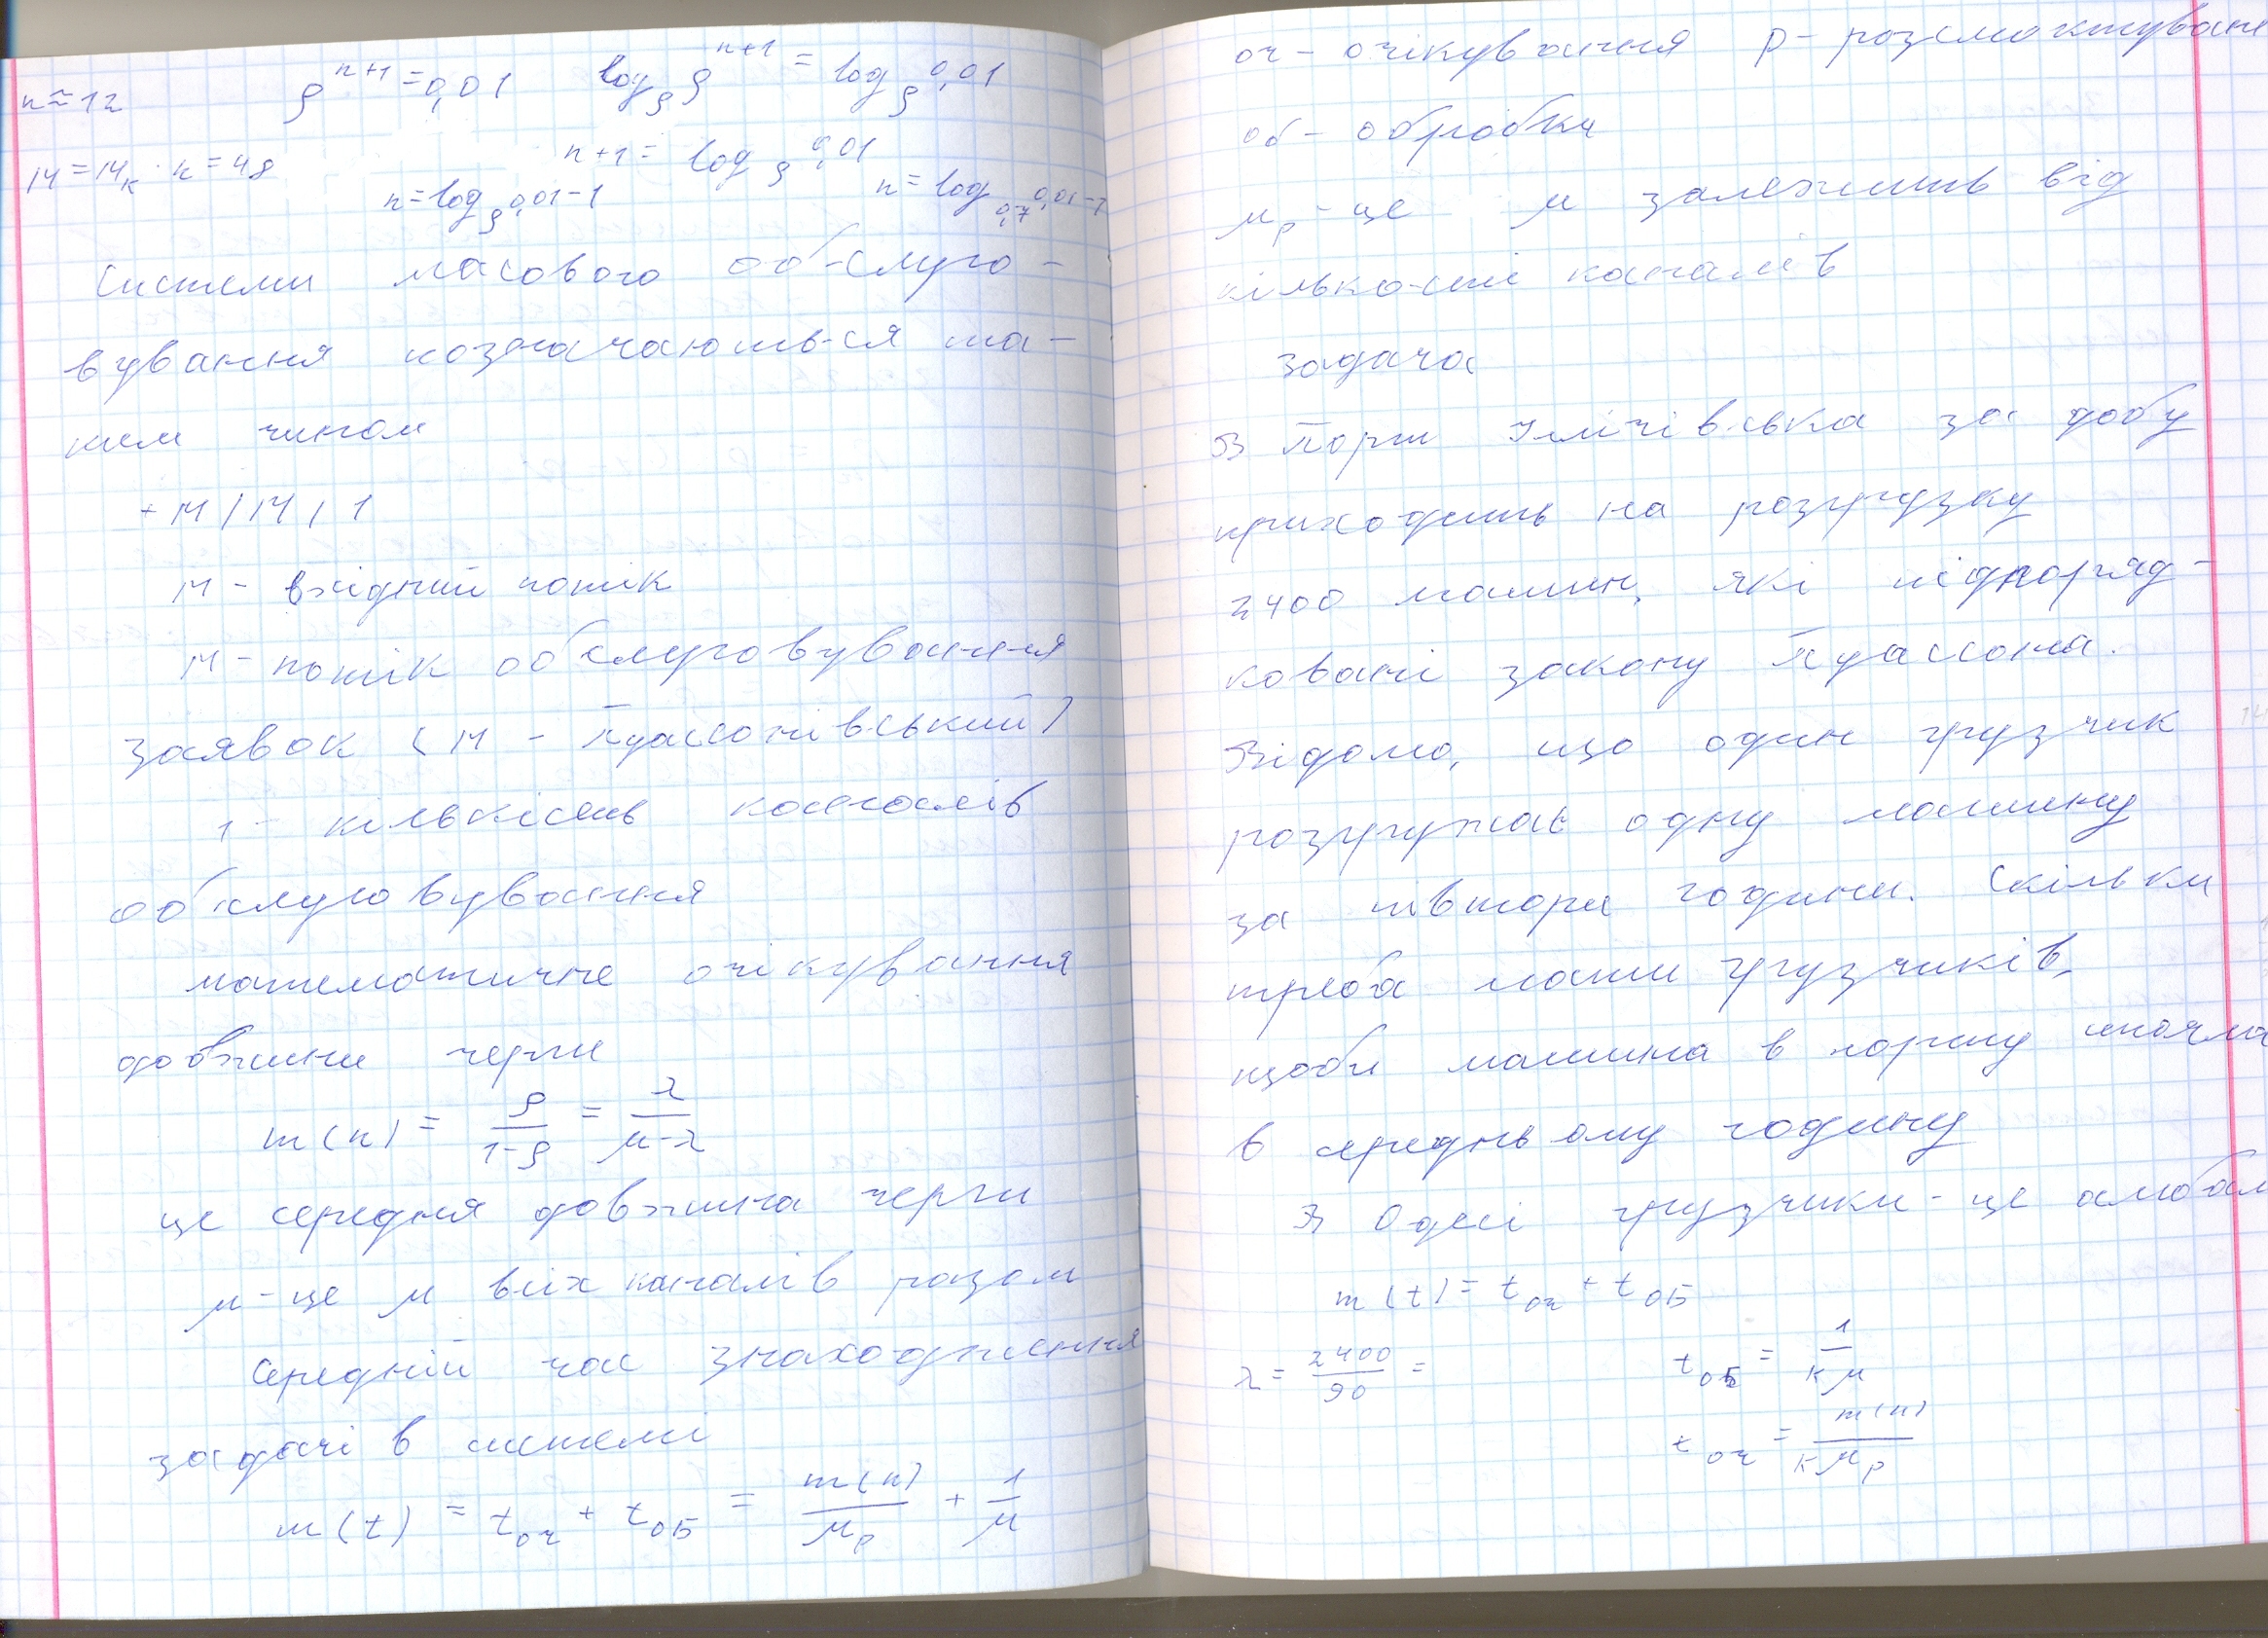 n≈12 ρ^{n+1} = 0,01 log_ρ ρ^{n+1} = log_ρ 0,01
M = M_к · к = 48 n+1 = log_ρ 0,01
n = log_ρ 0,01 - 1 n = log_{0,7} 0,01 - 1
Системи масового обслуго-
вування позначаються та-
ким чином
+ M / M / 1
M - вхідний потік
M - потік обслуговування
заявок (M - Пуассонівський)
1 - кількість каналів
обслуговування
математичне очікування
довжини черги
m(n) = ρ/(1-ρ) = λ/(μ-λ)
це середня довжина черги
μ - це μ всіх каналів разом
Середній час знаходження
задачі в системі
m(t) = t_оч + t_об = m(n)/μ_р + 1/μ
оч - очікування р - розсмоктуван
об - обробки
μ_р - це μ залежить від
кількості каналів
Задача
В Порт Ілічівська за добу
приходить на розгрузку
2400 машин, які підпоряд-
ковані закону Пуассона.
Відомо, що один грузчик
розгружає одну машину
за півтори години. Скільки
треба мати грузчиків,
щоби машина в порту стояла
в середньому годину
В Одесі грузчики - це амбали
m(t) = t_оч + t_об
λ = 2400/90 = t_об = 1/(к μ)
t_оч = m(n)/(к μ_р)